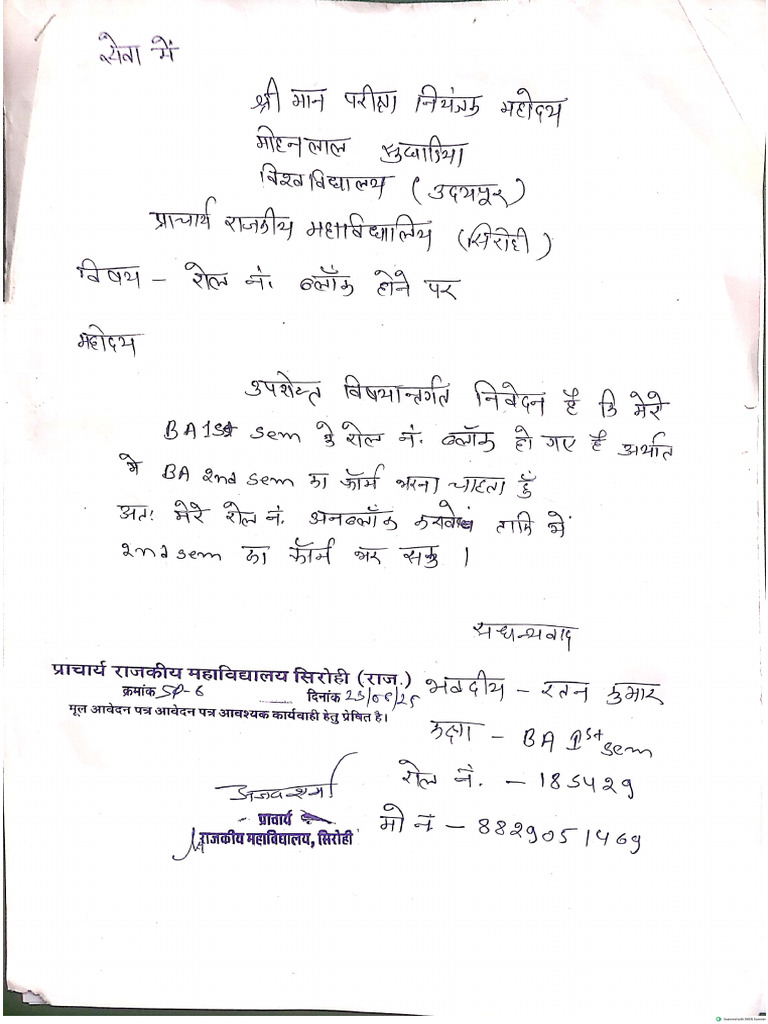 सेवा में
श्री मान परीक्षा नियंत्रक महोदय
मोहनलाल सुखाडिया
विश्वविद्यालय (उदयपुर)
प्राचार्य राजकीय महाविद्यालिय (सिरोही)
विषय - रोल नं. ब्लॉक होने पर
महोदय
उपरोक्त विषयान्तर्गत निवेदन है कि मेरे
BA 1st sem के रोल नं. ब्लॉक हो गए है अर्थात
मे BA 2nd sem का फॉर्म भरना चाहता हुँ
अतः मेरे रोल नं. अनब्लॉक करावे ताकि में
2nd sem का फॉर्म भर सकु ।
सधन्यवाद
प्राचार्य राजकीय महाविद्यालय सिरोही (राज.)
क्रमांक SP-6 दिनांक
मूल आवेदन पत्र आवेदन पत्र आवश्यक कार्यवाही हेतु प्रेषित है।
भवदीय - रतन कुमार
कक्षा - BA 1st sem
रोल नं. - 185429
मो नं - 8829051469
प्राचार्य
राजकीय महाविद्यालय, सिरोही
Scanned with OKEN Scanner